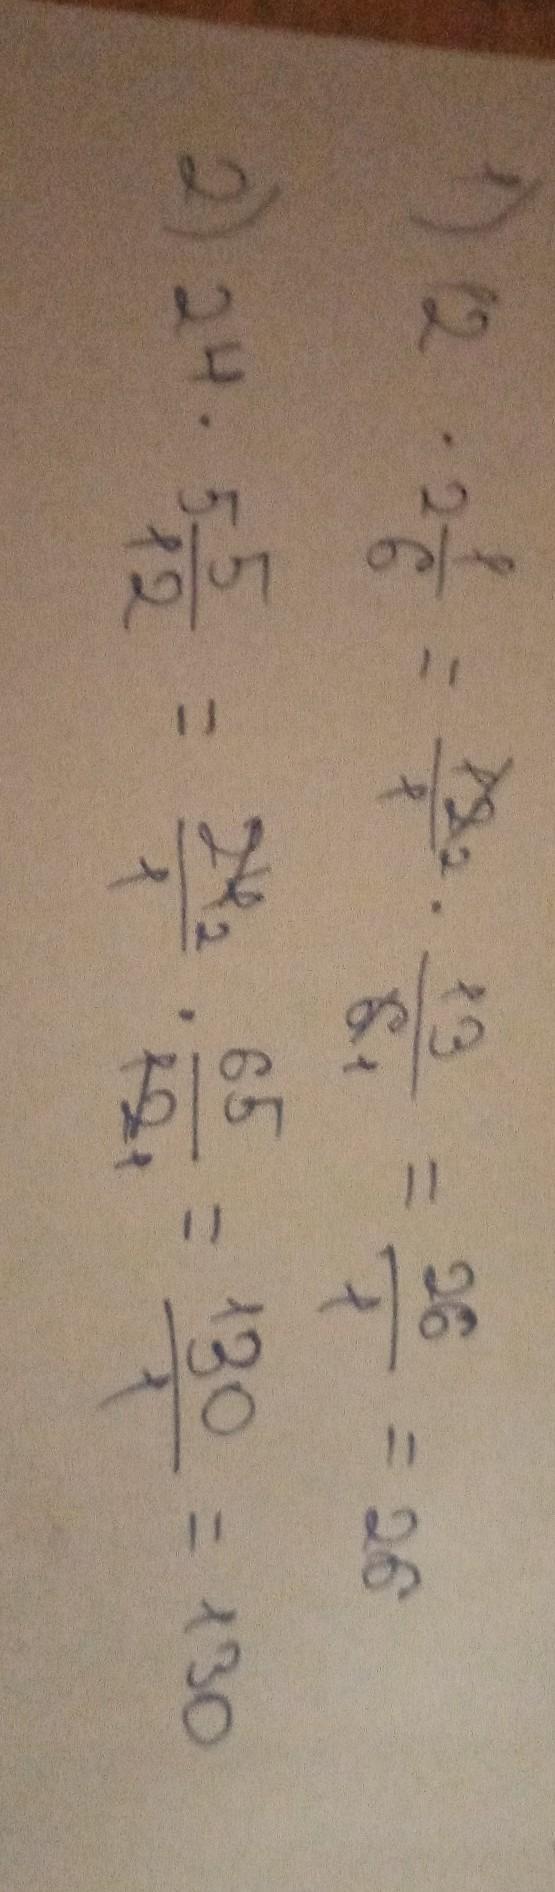 1) 12 · 2 1/6 = 12/1 2 · 13/6 1 = 26/1 = 26
2) 24 · 5 5/12 = 24/1 2 · 65/12 1 = 130/1 = 130